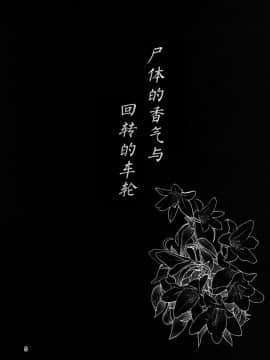 尸体的香气与
回转的车轮